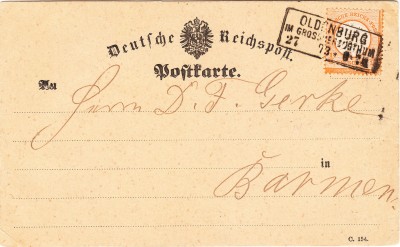 Deutsche Reichspost.
Postkarte.
OLDENBURG
IM GROSSHERZOGTHUM
27
73
An
Herrn D. F. Gerke
in
Barmen
C. 154.